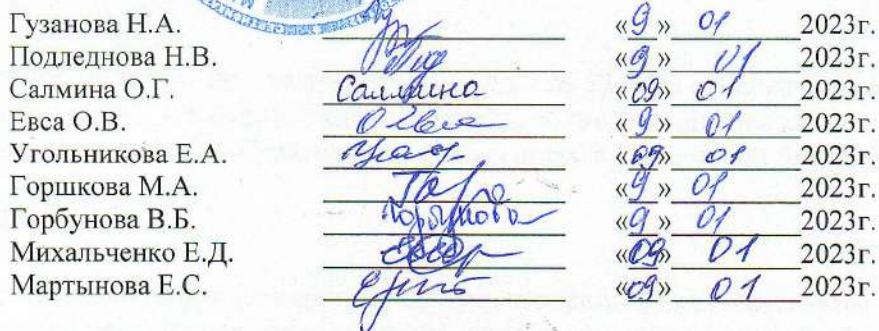 Гузанова Н.А. «9» 01 2023г.
Подледнова Н.В. «9» 01 2023г.
Салмина О.Г. Салмина «09» 01 2023г.
Евса О.В. «9» 01 2023г.
Угольникова Е.А. «09» 01 2023г.
Горшкова М.А. «9» 01 2023г.
Горбунова В.Б. Горбунова «9» 01 2023г.
Михальченко Е.Д. «09» 01 2023г.
Мартынова Е.С. «09» 01 2023г.